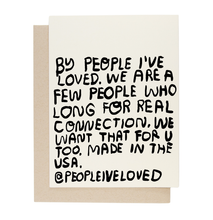 BY PEOPLE I'VE
LOVED. WE ARE A
FEW PEOPLE WHO
LONG FOR REAL
CONNECTION. WE
WANT THAT FOR U
TOO. MADE IN THE
USA.
@PEOPLEIVELOVED